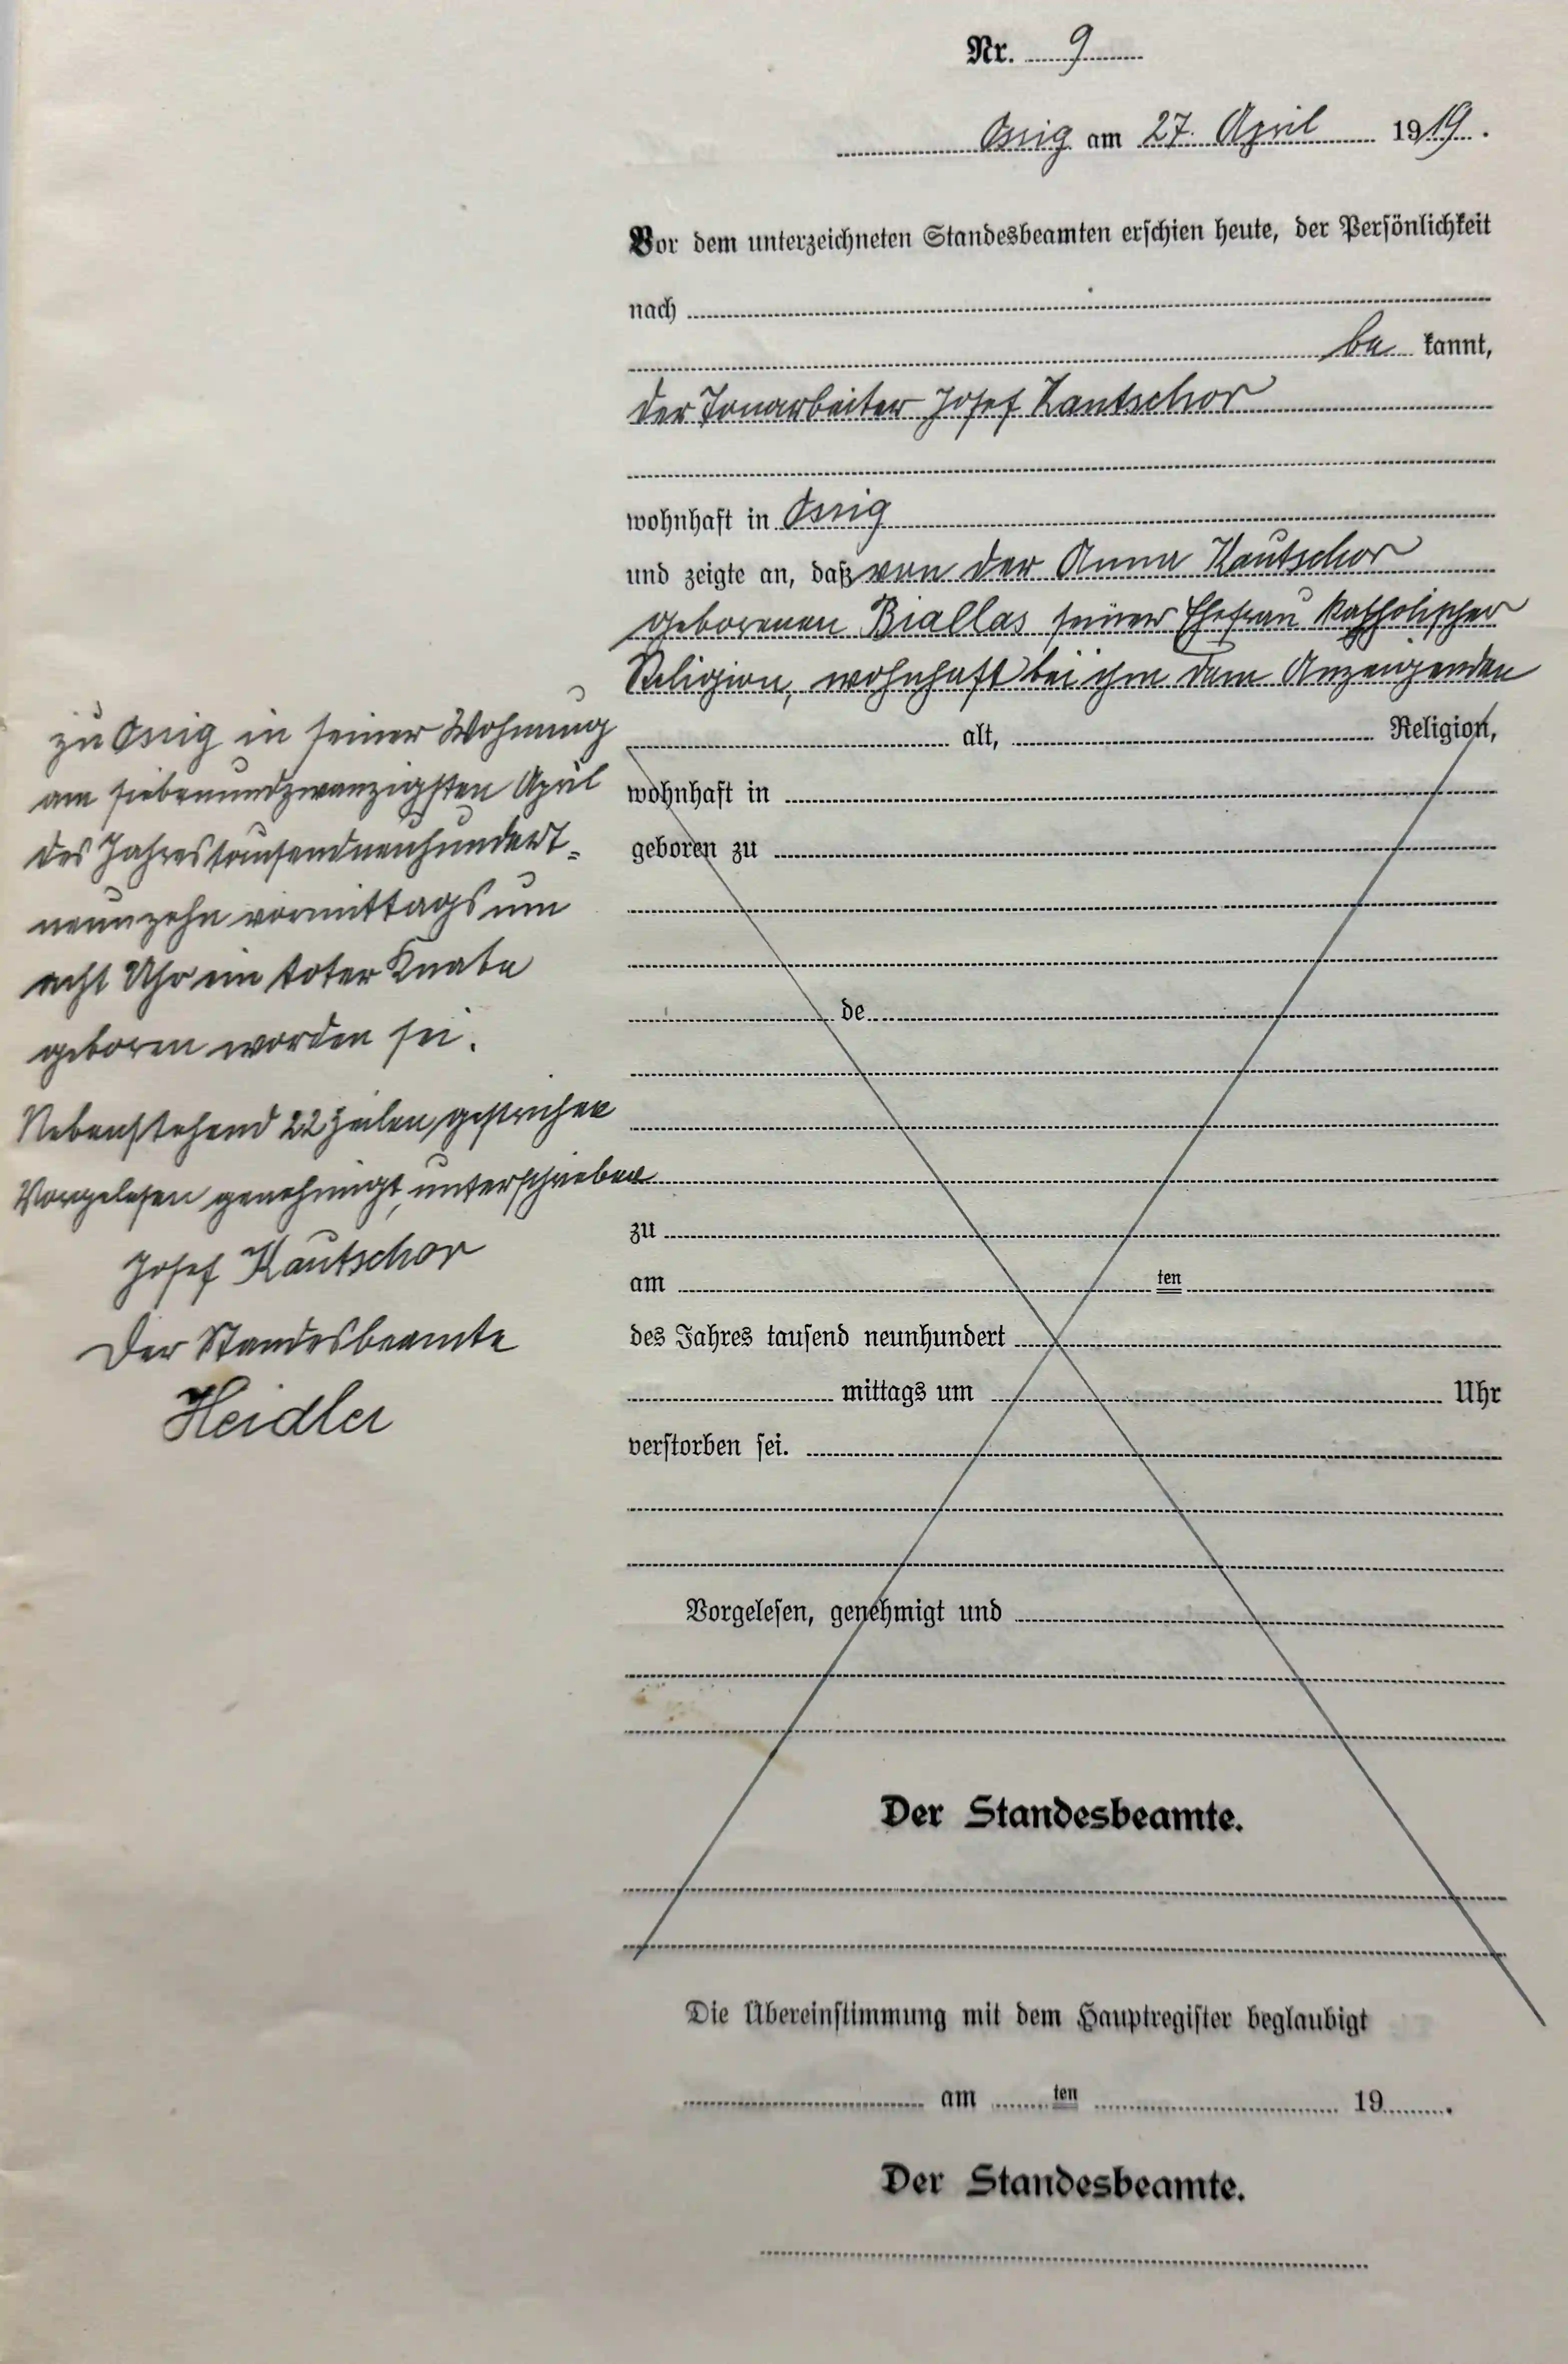 Nr. 9
Ossig am 27. April 1919.
Vor dem unterzeichneten Standesbeamten erschien heute, der Persönlichkeit
nach
be kannt,
der Tonarbeiter Josef Kautschor
wohnhaft in Ossig
und zeigte an, daß von der Anna Kautschor
geborenen Biallas seiner Ehefrau katholischer
Religion, wohnhaft bei ihm dem Anzeigenden
zu Ossig in seiner Wohnung
am siebenundzwanzigsten April
des Jahres tausendneunhundert-
neunzehn vormittags um
acht Uhr ein toter Knabe
geboren worden sei.
Nebenstehend 22 Zeilen gestrichen
Vorgelesen genehmigt, unterschrieben
Josef Kautschor
Der Standesbeamte
Heidler
alt, Religion,
wohnhaft in
geboren zu
de
zu
am ten
des Jahres tausend neunhundert
mittags um Uhr
verstorben sei.
Vorgelesen, genehmigt und
Der Standesbeamte.
Die Übereinstimmung mit dem Hauptregister beglaubigt
am ten 19 .
Der Standesbeamte.